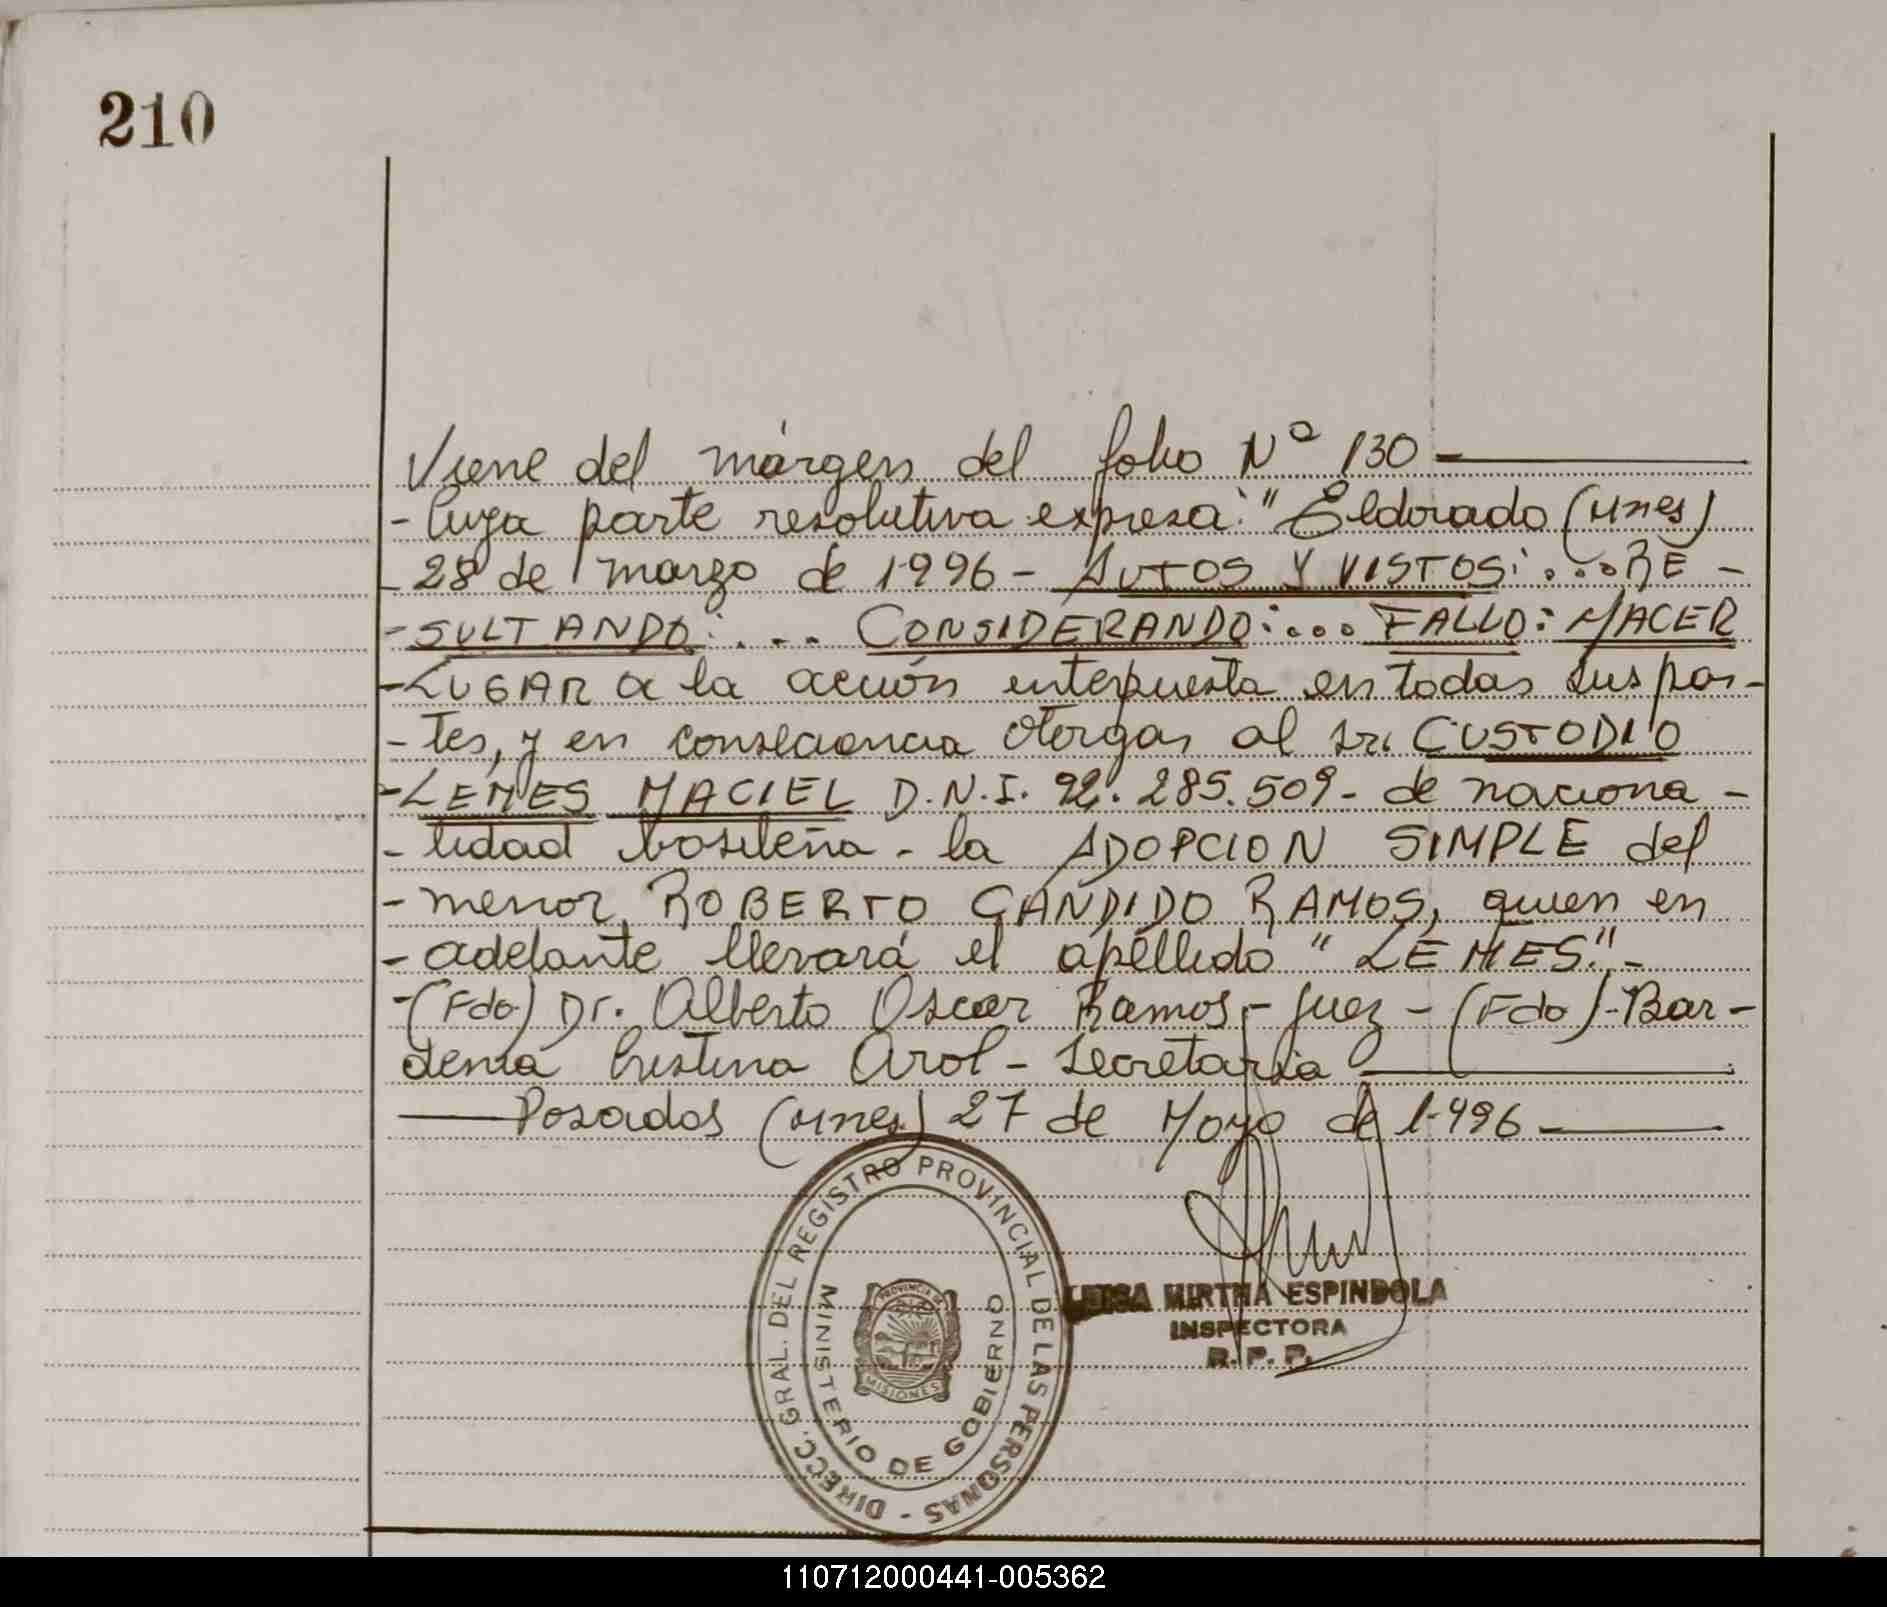 210
Viene del márgen del folio Nº 130
- Cuya parte resolutiva expresa: "Eldorado (Mnes)
- 28 de marzo de 1996 - AUTOS Y VISTOS: ... RE -
- SULTANDO: ... CONSIDERANDO: ... FALLO: HACER
- LUGAR a la acción interpuesta en todas sus par-
- tes, y en consecuencia otorgar al Sr. CUSTODIO
- LEMES MACIEL D.N.I. 92.285.509 - de naciona -
- lidad brasileña - la ADOPCION SIMPLE del
- menor, ROBERTO CANDIDO RAMOS, quien en
- adelante llevará el apéllido "LEMES". -
- (Fdo.) Dr. Alberto Oscar Ramos - Juez - (Fdo) - Bar -
denia Cristina Arol - Secretaria
Posadas (Mnes) 27 de Mayo de 1.996
DIRECC. GRAL. DEL REGISTRO PROVINCIAL DE LAS PERSONAS -
MINISTERIO DE GOBIERNO
PROVINCIA DE
MISIONES
LUISA MIRTHA ESPINDOLA
INSPECTORA
R. P. P.
110712000441-005362